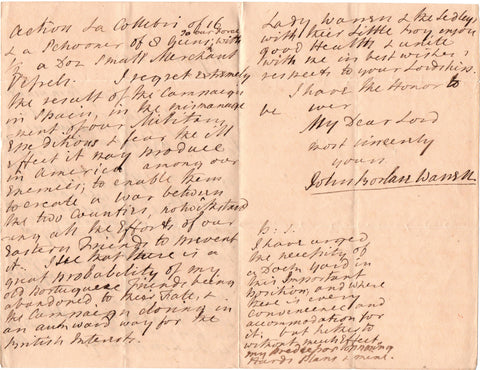 action &a
of 16
& a Schooner of 8 Guns; with
a Doz Small Merchant
Vessels. I regret extremely
the result of the Campaign
in Spain, in the mismanage
-ment of our Military
& fear the ill
effect it may produce
in America among our
Enemies; to enable them
to create a war between
the two Countries,
all the Efforts of our
Eastern Friends to prevent
it. I see that there is a
great probability of my
old Portuguese Friends being
abandoned to their Fate, &
the Campaign closing in
an awkward way for the
British Interests.
Lady Warren & the Sedleys
with their Little Boy enjoy
good Health & unite
with me in best wishes &
respects to your Lordships.
I have the Honor to
be ever
My Dear Lord
most sincerely
yours
John Borlase Warren
P: S:
I have urged
the necessity of
a Dock Yard in
this Important
Position, and where
there is every
convenience and
accommodation for
it. but hitherto
without much Effect
my Predecessor
Plans & ment.